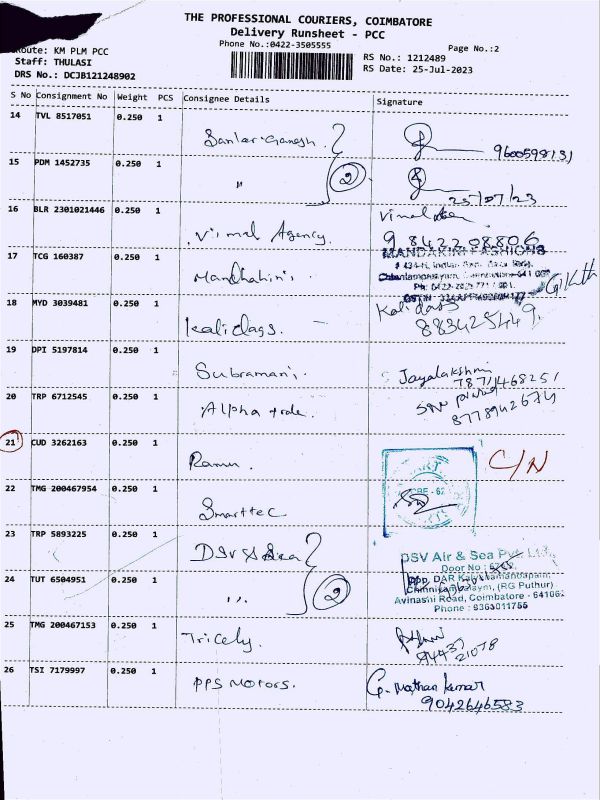 THE PROFESSIONAL COURIERS, COIMBATORE
Delivery Runsheet - PCC
Phone No.:0422-3505555
Page No.:2
Route: KM PLM PCC
Staff: THULASI
DRS No.: DCJB121248902
RS No.: 1212489
RS Date: 25-Jul-2023
S No Consignment No Weight PCS Consignee Details Signature
14 TVL 8517051 0.250 1
9600598131
15 PDM 1452735 0.250 1 " 2
25/07/23
16 BLR 2301021446 0.250 1 Vimal Agency.
9842208806
17 TCG 160387 0.250 1 Mandhahini.
MANDAKINI FASHIONS
18 MYD 3039481 0.250 1 Kalidass. Kalidass
883425449.
19 DPI 5197814 0.250 1 Subramani. Jayalakshmi
7871146825/
20 TRP 6712545 0.250 1 Alpha trade.
8778942674
21 CUD 3262163 0.250 1 Ramu. C/N
22 TMG 200467954 0.250 1 Smarttec
23 TRP 5893225 0.250 1 DSV
DSV Air & Sea Pvt. Ltd.,
Door No :
24 TUT 6504951 0.250 1 " 2
Opp. DAR Kalyanamandapam,
Chinniyampalayam, (RG Puthur)
Avinashi Road, Coimbatore - 641062
Phone : 9363011755
25 TMG 200467153 0.250 1 Tricely.
94437
21078
26 TSI 7179997 0.250 1 PPS Motors. G. Mathan kumar
9042646583